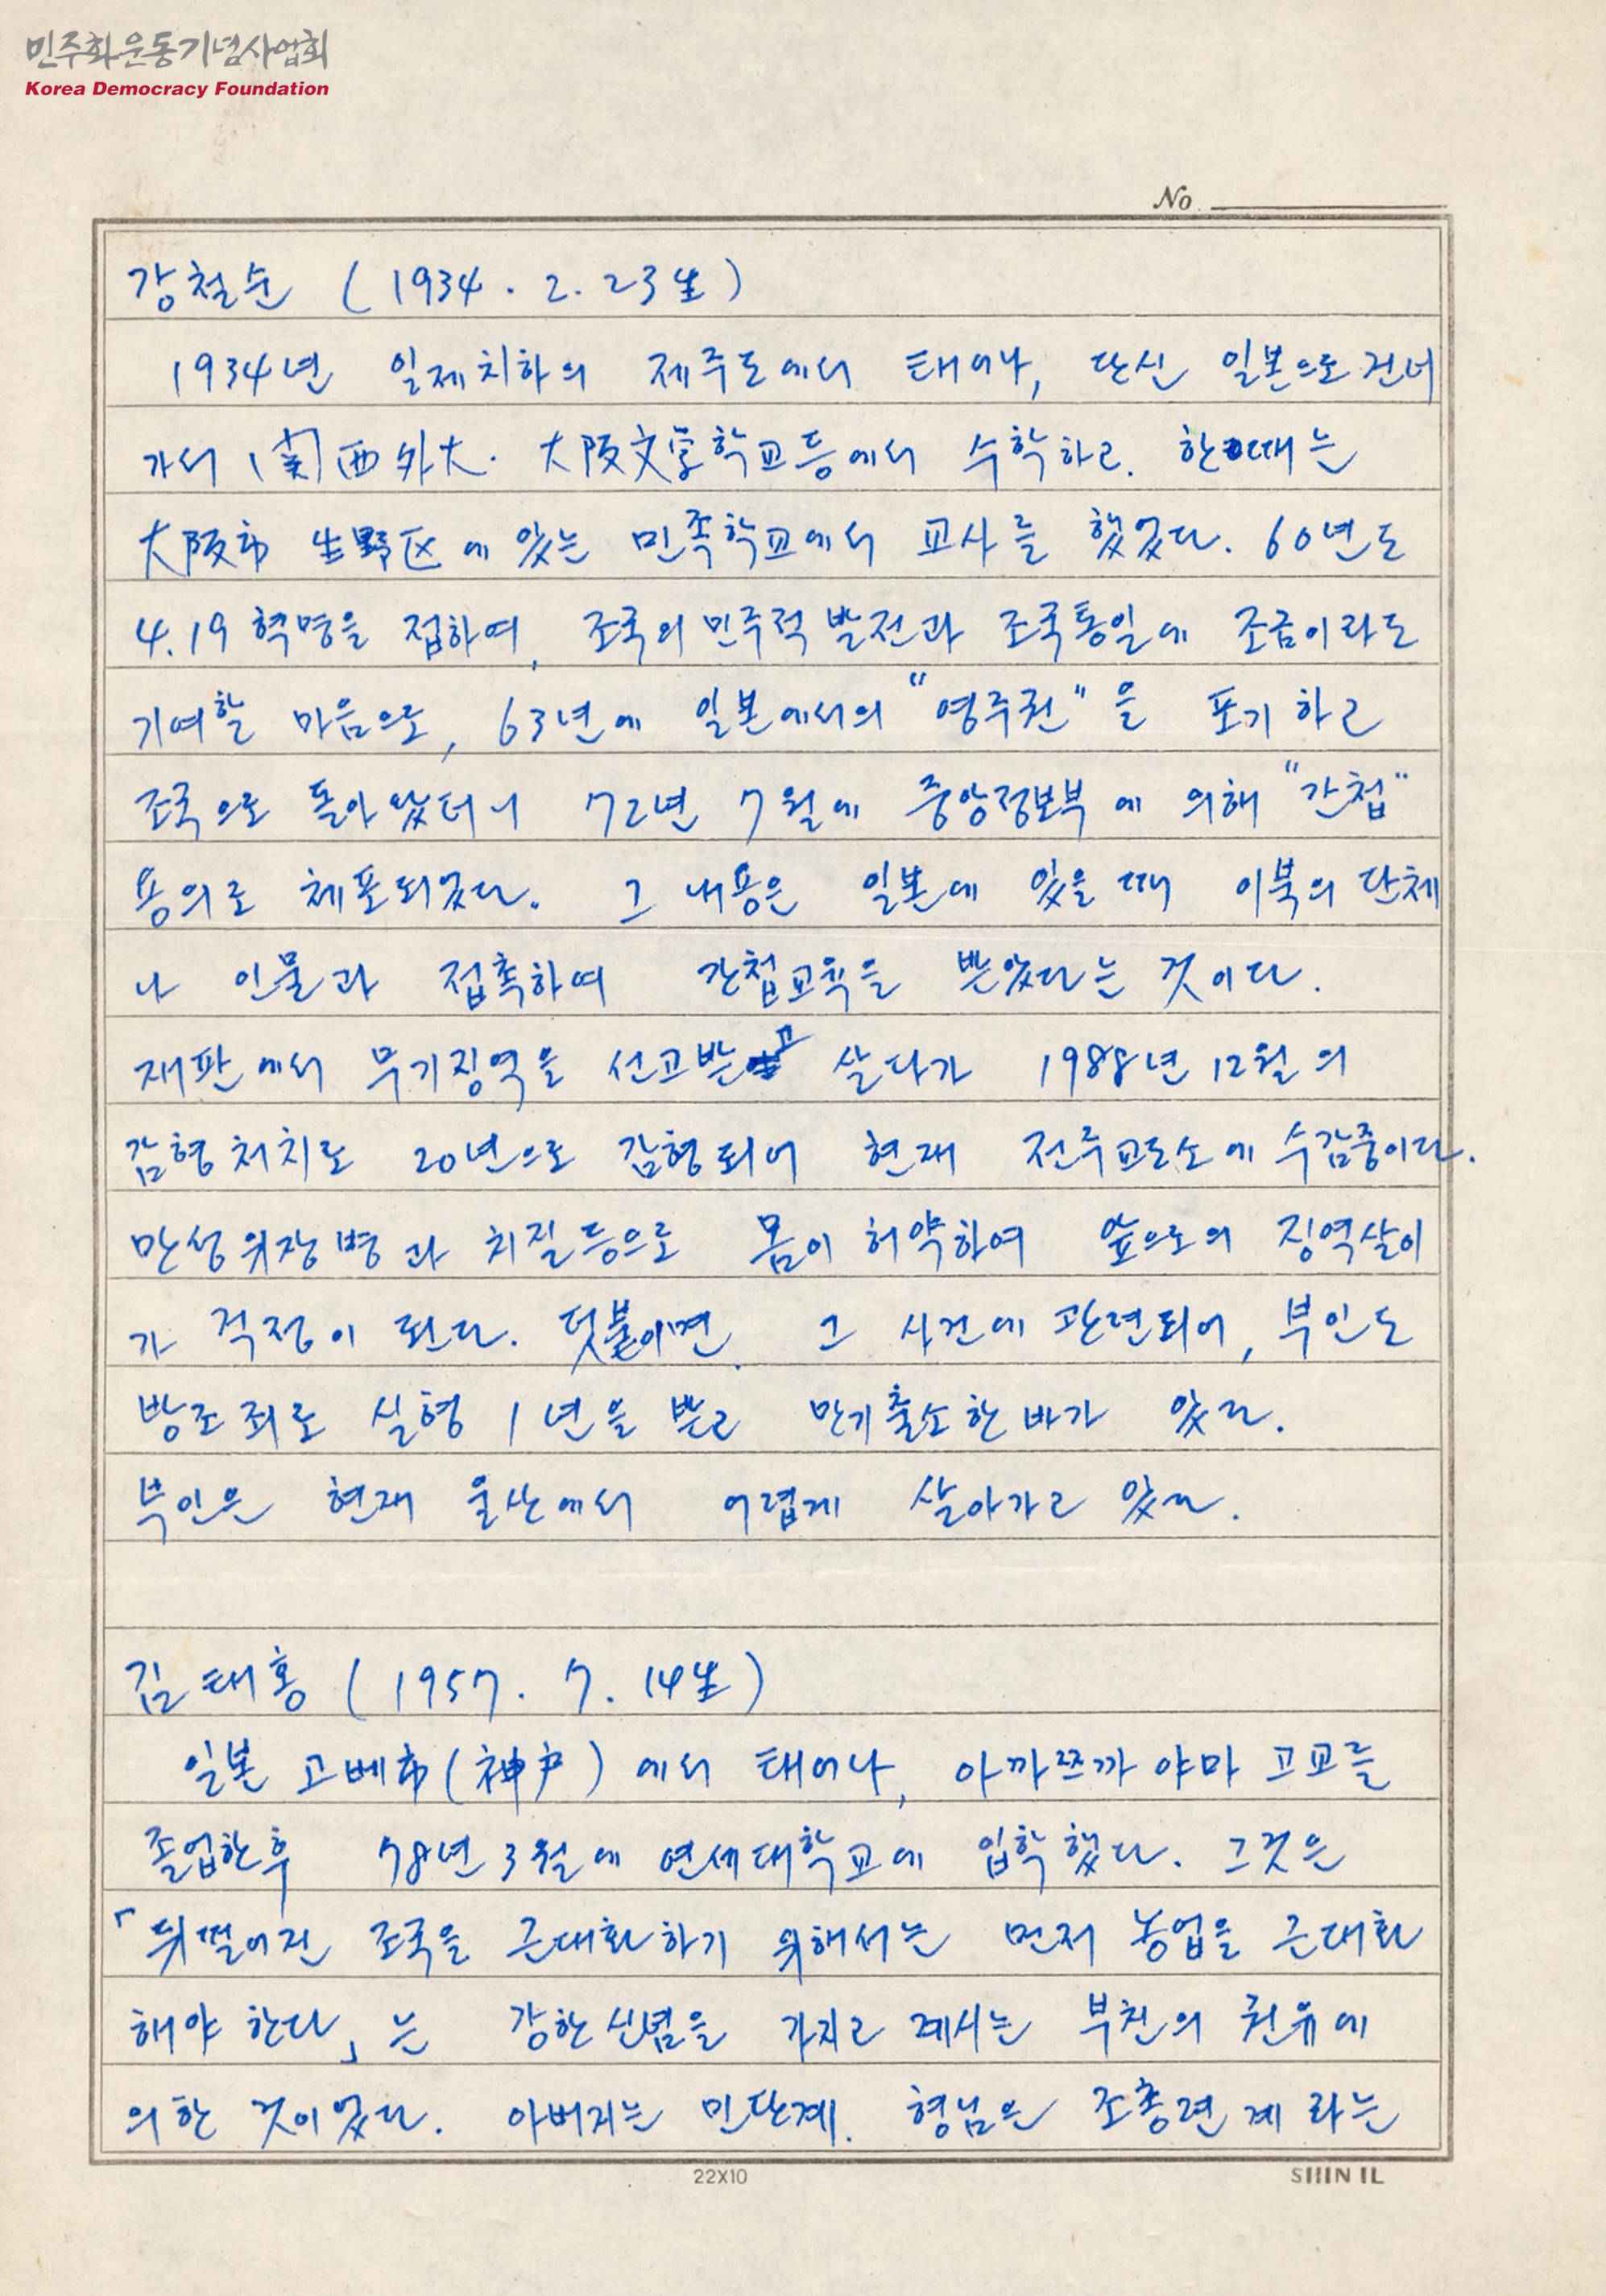 민주화운동기념사업회
Korea Democracy Foundation
No.
강철순 (1934. 2. 23生)
1934년 일제치하의 제주도에서 태어나, 단신 일본으로 건너
가서 関西外大. 大阪文学학교등에서 수학하고. 한때는
大阪市 生野区에 있는 민족학교에서 교사를 했었다. 60년도
4.19 혁명을 접하여, 조국의 민주적 발전과 조국통일에 조금이라도
기여할 마음으로, 63년에 일본에서의 "영주권"을 포기하고
조국으로 돌아왔더니 72년 7월에 중앙정보부에 의해 "간첩"
용의로 체포되었다. 그 내용은 일본에 있을 때 이북의 단체
나 인물과 접촉하여 간첩교육을 받았다는 것이다.
재판에서 무기징역을 선고받고 살다가 1988년 12월의
감형처치로 20년으로 감형되어 현재 전주교도소에 수감중이다.
만성위장병과 치질등으로 몸이 허약하여 앞으로의 징역살이
가 걱정이 된다. 덧붙이면. 그 사건에 관련되어, 부인도
방조죄로 실형 1년을 받고 만기출소한바가 있다.
부인은 현재 울산에서 어렵게 살아가고 있다.
김태홍 (1957. 7. 14生)
일본 고베市(神戶)에서 태어나, 아까쯔까 야마 고교를
졸업한후 78년 3월에 연세대학교에 입학했다. 그것은
「뒤떨어진 조국을 근대화하기 위해서는 먼저 농업을 근대화
해야 한다」는 강한 신념을 가지고 계시는 부친의 권유에
의한 것이었다. 아버지는 민단계. 형님은 조총련계 라는
22X10
SHIN IL